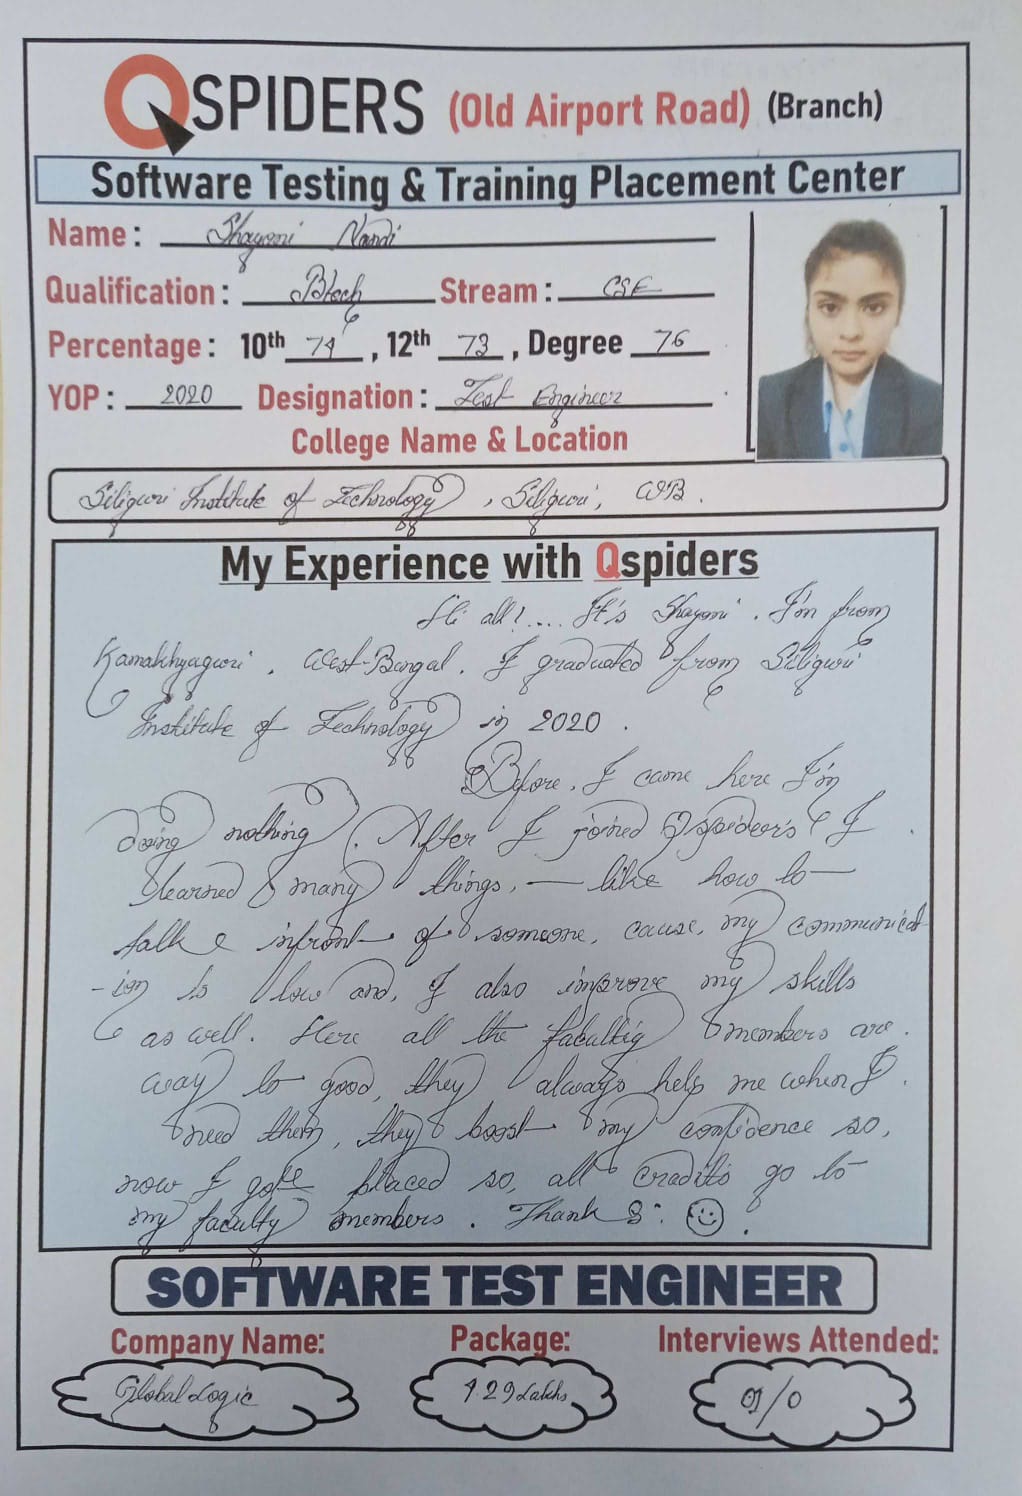 QSPIDERS (Old Airport Road) (Branch)
Software Testing & Training Placement Center
Name : Shayoni Nandi
Qualification : Btech Stream : CSE
Percentage : 10th 74 , 12th 73 , Degree 76
YOP : 2020 Designation : Test Engineer
College Name & Location
Siliguri Institute of Technology , Siliguri, WB .
My Experience with Qspiders
Hi all! .... It's Shayoni . I'm from
Kamakhyaguri , West-Bengal . I graduated from Siliguri
Institute of Technology in 2020 .
Before, I came here I'm
doing nothing . After I joined Qspiders I
learned many things, — like how to —
talk infront of someone, cause, my communicat
-ion is low and, I also improve my skills
as well. Here all the facultiy members are .
way to good, they always help me when I .
need them, they boost my confidence so,
now I gote placed so, all credits go to
my faculty members . Thank S: .
SOFTWARE TEST ENGINEER
Company Name: Package: Interviews Attended:
GlobalLogic 4.29 Lakhs 01/0